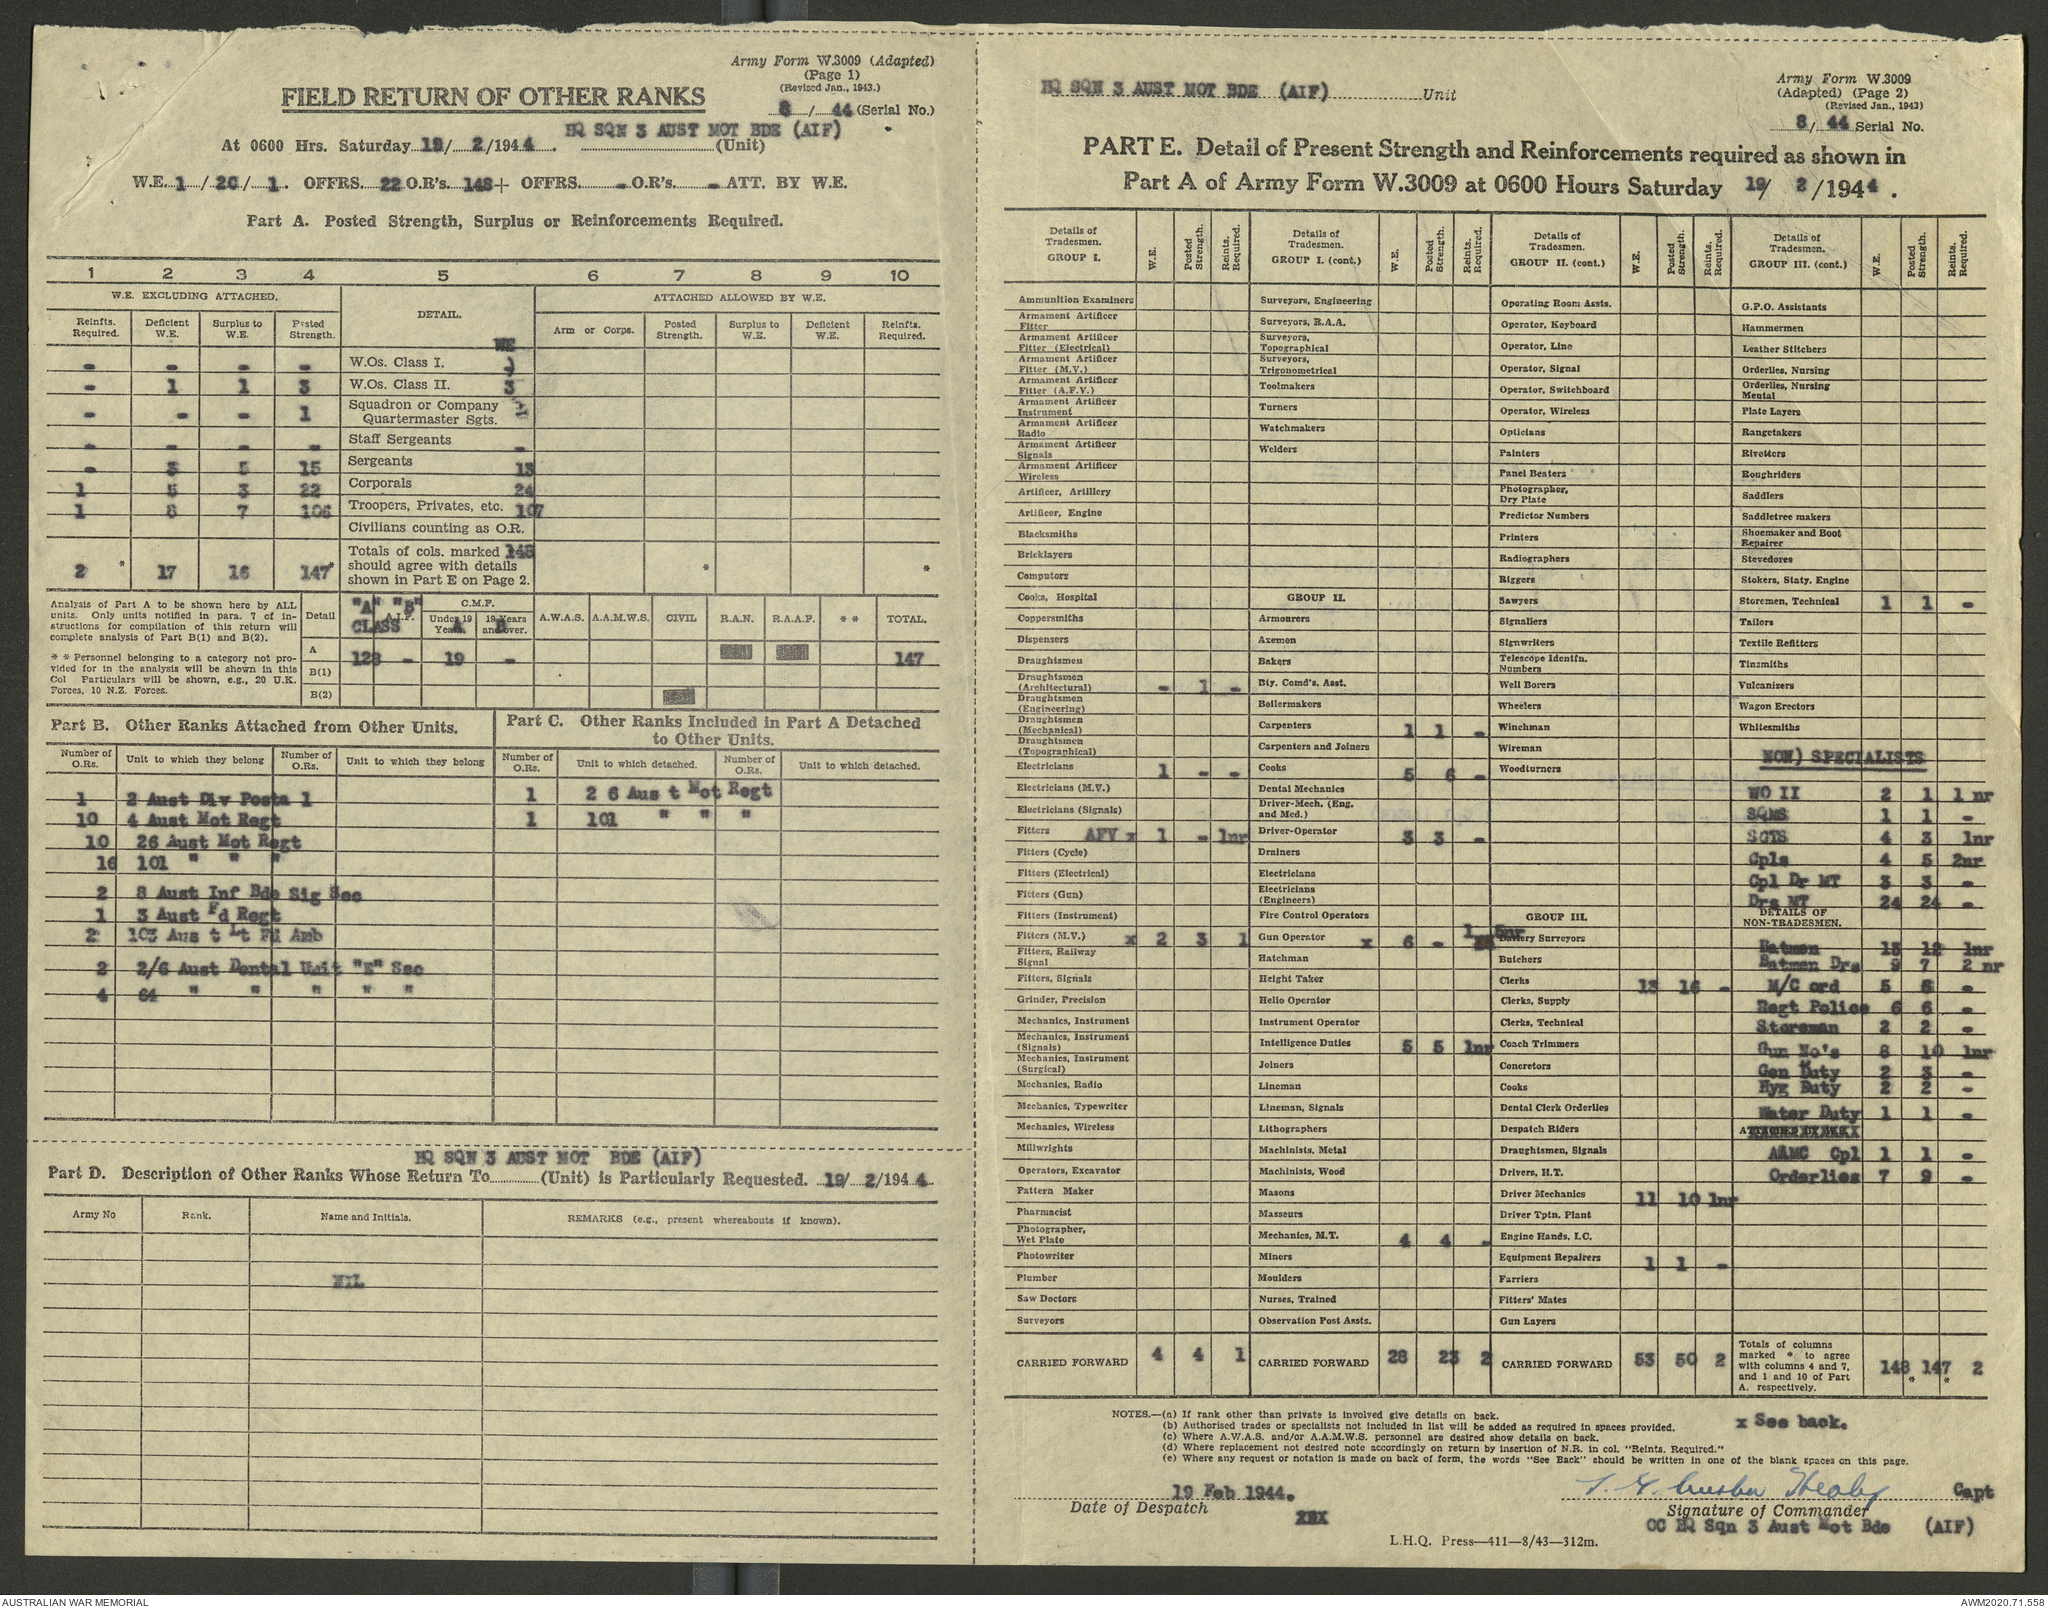 Army Form W.3009 (Adapted)
(Page 1)
(Revised Jan., 1943.)
8 / 44 (Serial No.)
FIELD RETURN OF OTHER RANKS
HQ SQN 3 AUST MOT BDE (AIF)
At 0600 Hrs. Saturday 19/ 2/1944 . (Unit)
W.E. 1 / 2C / 1 . OFFRS. 22 O.R's. 148+ OFFRS. - O.R's. - ATT. BY W.E.
Part A. Posted Strength, Surplus or Reinforcements Required.
1 2 3 4 5 6 7 8 9 10
W.E. EXCLUDING ATTACHED. DETAIL. ATTACHED ALLOWED BY W.E.
Reinfts. Required. Deficient W.E. Surplus to W.E. Posted Strength. WE Arm or Corps. Posted Strength. Surplus to W.E. Deficient W.E. Reinfts. Required.
- - - - W.Os. Class I.
- 1 1 3 W.Os. Class II. 3
- - - 1 Squadron or Company Quartermaster Sgts.
- - - - Staff Sergeants -
- 3 5 15 Sergeants 13
1 5 3 22 Corporals 24
1 8 7 106 Troopers, Privates, etc. 107
Civilians counting as O.R.
2 * 17 16 147* Totals of cols. marked 148 should agree with details shown in Part E on Page 2. * *
Analysis of Part A to be shown here by ALL
units. Only units notified in para. 7 of in-
structions for compilation of this return will
complete analysis of Part B(1) and B(2).
* * Personnel belonging to a category not pro-
vided for in the analysis will be shown in this
Col Particulars will be shown, e.g., 20 U.K.
Forces, 10 N.Z. Forces.
Detail "A" "B" CLASS A.I.F. C.M.F. Under 19 Years. A 19 Years and over. B A.W.A.S. A.A.M.W.S. CIVIL R.A.N. R.A.A.F. * * TOTAL.
A 128 - 19 - 147
B(1)
B(2)
Part B. Other Ranks Attached from Other Units.
Number of O.Rs. Unit to which they belong Number of O.Rs. Unit to which they belong
1 2 Aust Div Posta l
10 4 Aust Mot Regt
10 26 Aust Mot Regt
16 101 " " "
2 8 Aust Inf Bde Sig Sec
1 3 Aust Fd Regt
2 103 Aus t Lt Fd Amb
2 2/6 Aust Dental Unit "E" Sec
4 64 " " " " "
Part C. Other Ranks Included in Part A Detached
to Other Units.
Number of O.Rs. Unit to which detached. Number of O.Rs. Unit to which detached.
1 2 6 Aus t Mot Regt
1 101 " " "
HQ SQN 3 AUST MOT BDE (AIF)
Part D. Description of Other Ranks Whose Return To (Unit) is Particularly Requested. 19/ 2/1944
Army No Rank. Name and Initials. REMARKS (e.g., present whereabouts if known).
NIL
HQ SQN 3 AUST MOT BDE (AIF) Unit
Army Form W.3009
(Adapted) (Page 2)
(Revised Jan., 1943)
8/ 44 Serial No.
PART E. Detail of Present Strength and Reinforcements required as shown in
Part A of Army Form W.3009 at 0600 Hours Saturday 19/ 2 /1944 .
Details of Tradesmen. GROUP I. W.E. Posted Strength. Reints. Required.
Ammunition Examiners
Armament Artificer Fitter
Armament Artificer Fitter (Electrical)
Armament Artificer Fitter (M.V.)
Armament Artificer Fitter (A.F.V.)
Armament Artificer Instrument
Armament Artificer Radio
Armament Artificer Signals
Armament Artificer Wireless
Artificer, Artillery
Artificer, Engine
Blacksmiths
Bricklayers
Computors
Cooks, Hospital
Coppersmiths
Dispensers
Draughtsmen
Draughtsmen (Architectural) - 1 -
Draughtsmen (Engineering)
Draughtsmen (Mechanical)
Draughtsmen (Topographical)
Electricians 1 - -
Electricians (M.V.)
Electricians (Signals)
Fitters AFV x 1 - 1nr
Fitters (Cycle)
Fitters (Electrical)
Fitters (Gun)
Fitters (Instrument)
Fitters (M.V.) x 2 3 1
Fitters, Railway Signal
Fitters, Signals
Grinder, Precision
Mechanics, Instrument
Mechanics, Instrument (Signals)
Mechanics, Instrument (Surgical)
Mechanics, Radio
Mechanics, Typewriter
Mechanics, Wireless
Millwrights
Operators, Excavator
Pattern Maker
Pharmacist
Photographer, Wet Plate
Photowriter
Plumber
Saw Doctors
Surveyors
CARRIED FORWARD 4 4 1
Details of Tradesmen. GROUP I. (cont.) W.E. Posted Strength. Reints. Required.
Surveyors, Engineering
Surveyors, R.A.A.
Surveyors, Topographical
Surveyors, Trigonometrical
Toolmakers
Turners
Watchmakers
Welders
GROUP II.
Armourers
Axemen
Bakers
Bty. Comd's. Asst.
Boilermakers
Carpenters 1 1 -
Carpenters and Joiners
Cooks 5 6 -
Dental Mechanics
Driver-Mech. (Eng. and Med.)
Driver-Operator 3 3 -
Drainers
Electricians
Electricians (Engineers)
Fire Control Operators
Gun Operator x 6 - 1 5nr
Hatchman
Height Taker
Helio Operator
Instrument Operator
Intelligence Duties 5 5 1nr
Joiners
Lineman
Lineman, Signals
Lithographers
Machinists, Metal
Machinists, Wood
Masons
Masseurs
Mechanics, M.T. 4 4 -
Miners
Moulders
Nurses, Trained
Observation Post Assts.
CARRIED FORWARD 28 23 2
Details of Tradesmen. GROUP II. (cont.) W.E. Posted Strength. Reints. Required.
Operating Room Assts.
Operator, Keyboard
Operator, Line
Operator, Signal
Operator, Switchboard
Operator, Wireless
Opticians
Painters
Panel Beaters
Photographer, Dry Plate
Predictor Numbers
Printers
Radiographers
Riggers
Sawyers
Signallers
Signwriters
Telescope Identfn. Numbers
Well Borers
Wheelers
Winchman
Wireman
Woodturners
GROUP III.
Battery Surveyors
Butchers
Clerks 13 16 -
Clerks, Supply
Clerks, Technical
Coach Trimmers
Concretors
Cooks
Dental Clerk Orderlies
Despatch Riders
Draughtsmen, Signals
Drivers, H.T.
Driver Mechanics 11 10 1nr
Driver Tptn. Plant
Engine Hands, I.C.
Equipment Repairers 1 1 -
Farriers
Fitters' Mates
Gun Layers
CARRIED FORWARD 53 50 2
Details of Tradesmen. GROUP III. (cont.) W.E. Posted Strength. Reints. Required.
G.P.O. Assistants
Hammermen
Leather Stitchers
Orderlies, Nursing
Orderlies, Nursing Mental
Plate Layers
Rangetakers
Rivetters
Roughriders
Saddlers
Saddletree makers
Shoemaker and Boot Repairer
Stevedores
Stokers, Staty. Engine
Storemen, Technical 1 1 -
Tailors
Textile Refitters
Tinsmiths
Vulcanizers
Wagon Erectors
Whitesmiths
NON) SPECIALISTS
WO II 2 1 1 nr
SQMS 1 1 -
SGTS 4 3 1nr
Cpls 4 5 2nr
Cpl Dr MT 3 3 -
Drs MT 24 24 -
DETAILS OF NON-TRADESMEN.
Batmen 13 12 1nr
Batmen Drs 9 7 2 nr
M/C ord 5 6 -
Regt Police 6 6 -
Storeman 2 2 -
Gun No's 8 10 1nr
Gen Duty 2 3 -
Hyg Duty 2 2 -
Water Duty 1 1 -
ATTACHED BY W.E.
AAMC Cpl 1 1 -
Orderlies 7 9 -
Totals of columns marked * to agree with columns 4 and 7, and 1 and 10 of Part A. respectively. 148 147 2
* *
NOTES.—(a) If rank other than private is involved give details on back.
(b) Authorised trades or specialists not included in list will be added as required in spaces provided.
(c) Where A.W.A.S. and/or A.A.M.W.S. personnel are desired show details on back.
(d) Where replacement not desired note accordingly on return by insertion of N.R. in col. "Reints. Required."
(e) Where any request or notation is made on back of form, the words "See Back" should be written in one of the blank spaces on this page.
x See back.
19 Feb 1944.
Date of Despatch
Capt
Signature of Commander
OC HQ Sqn 3 Aust Mot Bde (AIF)
L.H.Q. Press—411—8/43—312m.
AUSTRALIAN WAR MEMORIAL
AWM2020.71.558